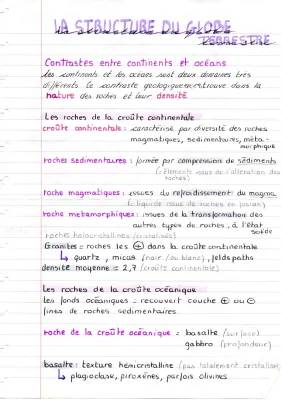 LA STRUCTURE DU GLOBE
TERRESTRE
Contrastes entre continents et océans
Les continents et les océans sont deux domaines très
différents. Le contraste géologique se retrouve dans la
nature des roches et leur densité
Les roches de la croûte continentale
croûte continentale : caractérisé par diversité des roches
magmatiques, sédimentaires, méta-
morphique
roches sedimentaires : formée par compression de sédiments
(: Éléments issus de l'altération des
roches)
roche magmatiques : issues du refroidissement du magma
(: liquide issue de roches en fusion)
roche metamorphiques : issues de la transformation des
autres types de roches, à l'état
solide
roches holocristallines (cristalisés)
Granites = roches les + dans la croûte continentale
↳ quartz, micas (noir / ou blanc), feldspaths
densité moyenne = 2,7 (croûte continentale)
Les roches de la croûte océanique
les fonds océaniques = recouvert couche + ou -
fines de roches sédimentaires.
roche de la croûte océanique = basalte (surface)
gabbro (profondeur)
basalte : texture hémicristalline (pas totalement cristalisée)
↳ plagioclase, piroxènes, parfois olivines